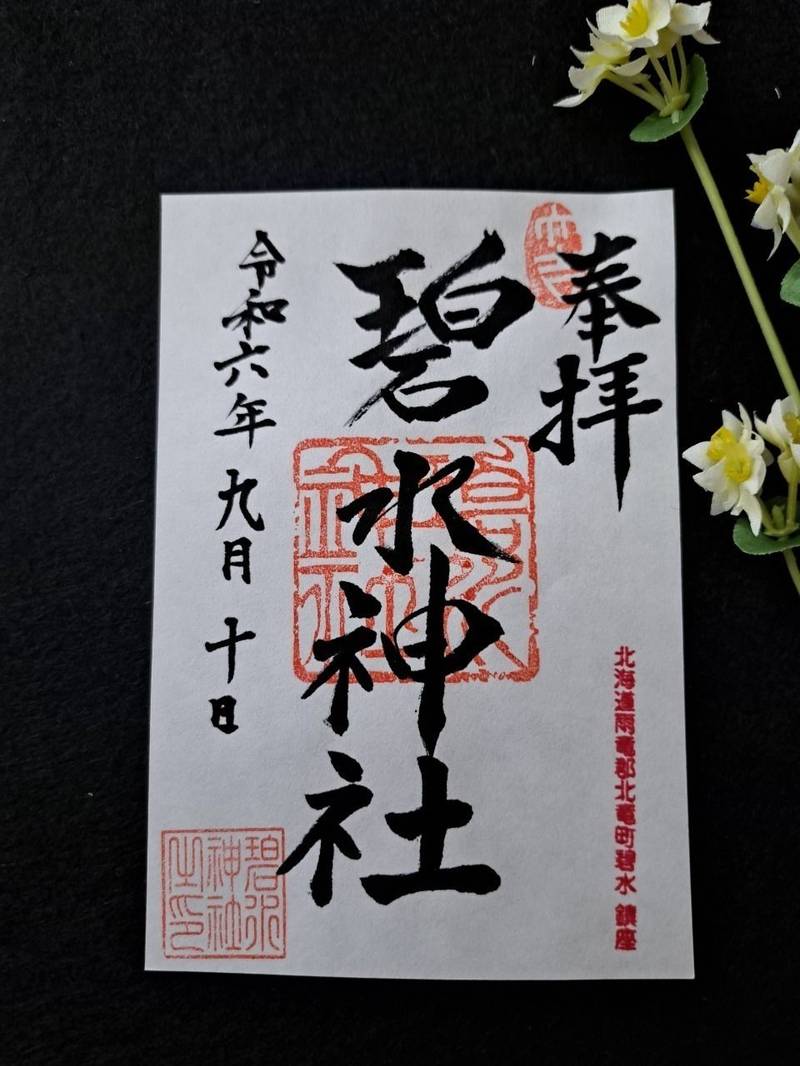 奉拝
北海道雨竜郡北竜町碧水 鎮座
碧水神社
令和六年九月十日
碧水神社之印